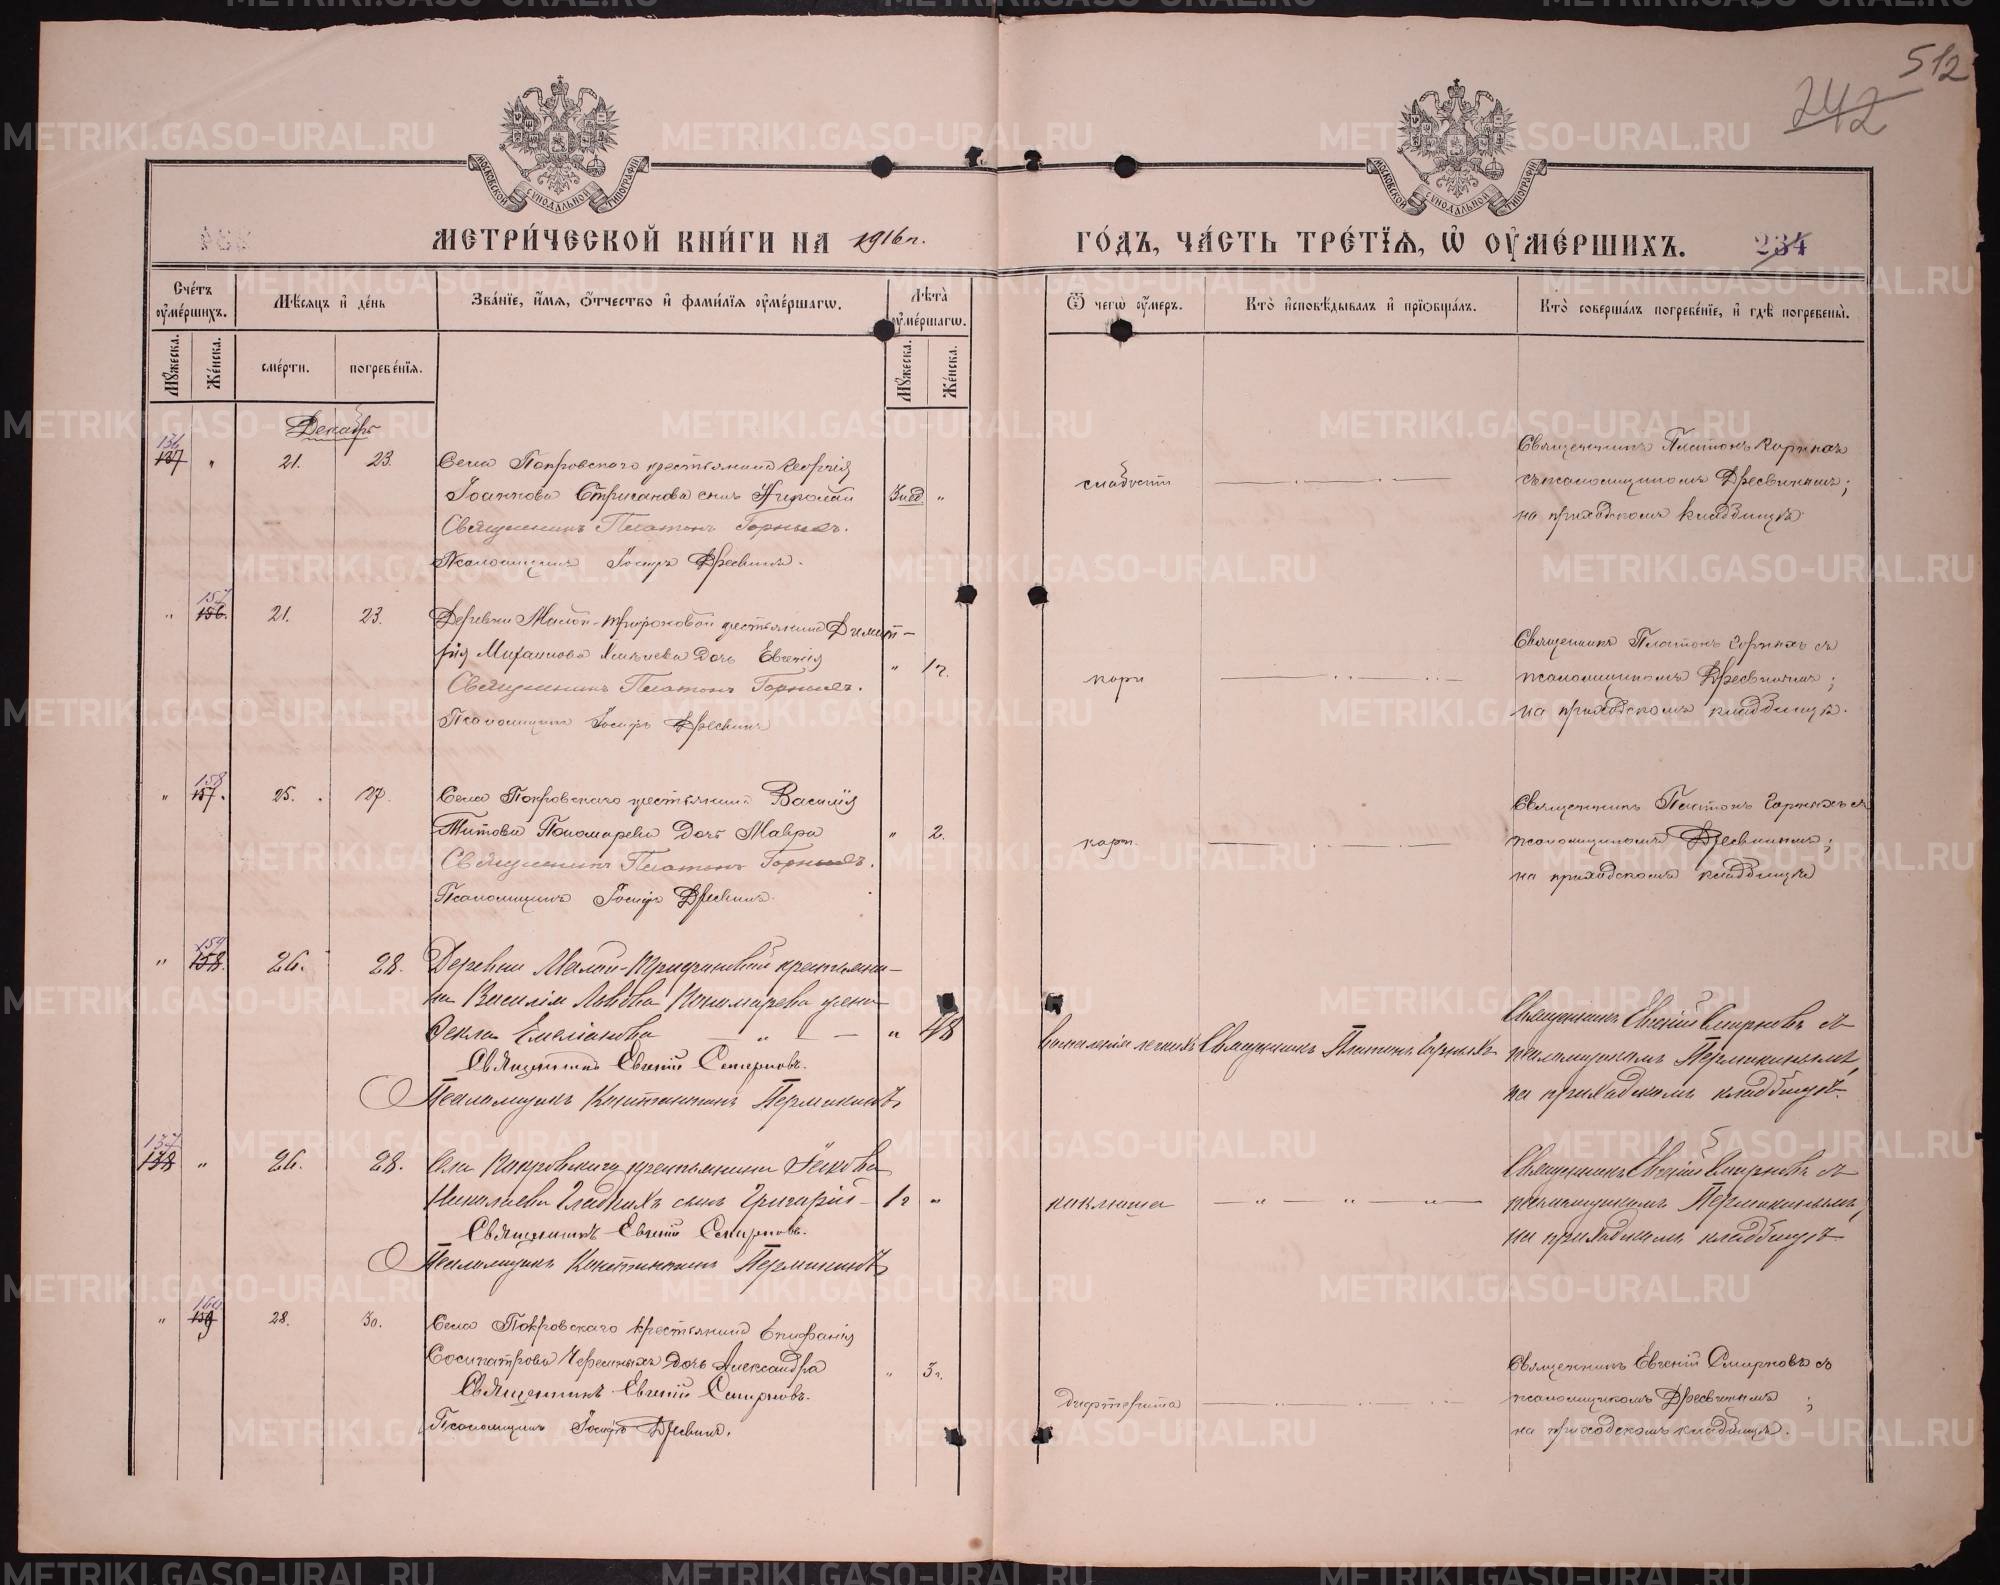 512
242
МОСКОВСКОЙ СѴНОДАЛЬНОЙ ТИПОГРАФІИ
МОСКОВСКОЙ СѴНОДАЛЬНОЙ ТИПОГРАФІИ
МЕТРИ́ЧЕСКОЙ КНИ́ГИ НА 1916 г.
ГО́ДЪ, ЧА́СТЬ ТРЕ́ТЇѦ, Ѡ҆ ОУ҆МЕ́РШИХЪ. 234
Сче́тъ оу҆ме́ршихъ.
Мꙋ́жеска.
Же́нска.
Мѣ́сѧцъ и҆ де́нь
сме́рти.
погребе́нїѧ.
Зва́нїе, и҆́мѧ, ѻ҆́тчество и҆ фами́лїѧ оу҆ме́ршагѡ.
Лѣ́та оу҆ме́ршагѡ.
Мꙋ́жеска.
Же́нска.
Ѿ чегѡ̀ оу҆́меръ.
Кто̀ и҆сповѣ́дывалъ и҆ прїѡбща́лъ.
Кто̀ соверша́лъ погребе́нїе, и҆ гдѣ̀ погребены̀.
Декабрь
136
137 " 21. 23. Села Покровскаго крестьянина Георгія
Іоаннова Стриганова сынъ Николай "
Священникъ Платонъ Горныхъ.
Псаломщикъ Іосифъ Дресвинъ.
слабости
Священникъ Платонъ Горныхъ
съ псаломщикомъ Дресвинымъ;
на приходскомъ кладбищѣ
157
" 156. 21. 23. Деревни Малой-Трифоновой крестьянина Димит-
рія Михайлова дочь Евгенія " 1 г.
Священникъ Платонъ Горныхъ.
Псаломщикъ Іосифъ Дресвинъ
кори
Священникъ Платонъ Горныхъ съ
псаломщикомъ Дресвинымъ;
на приходскомъ кладбищѣ.
158
" 157. 25. 27. Села Покровскаго крестьянина Василія
Титова Пономарева дочь Мавра " 2.
Священникъ Платонъ Горныхъ.
Псаломщикъ Іосифъ Дресвинъ.
кори.
Священникъ Платонъ Горныхъ съ
псаломщикомъ Дресвинымъ;
на приходскомъ кладбищѣ
159
" 158. 26. 28. Деревни Малой-Трифоновой крестьяни-
на Василія Львова Пономарева жена
Фекла Емеліанова " 48
Священникъ Евгеній Смирновъ.
Псаломщикъ Константинъ Пермикинъ
воспаленія легкихъ Священникъ Платонъ Горныхъ
Священникъ Евгеній Смирновъ съ
псаломщикомъ Пермикинымъ,
на приходскомъ кладбищѣ.
137
138 " 26. 28. Села Покровскаго крестьянина Іакова
Николаева Гладкихъ сынъ Григорій - 1 г "
Священникъ Евгеній Смирновъ.
Псаломщикъ Константинъ Пермикинъ
коклюша
Священникъ Евгеній Смирновъ съ
псаломщикомъ Пермикинымъ,
на приходскомъ кладбищѣ
160
" 159 28. 30. Села Покровскаго крестьянина Епифанія
Сосипатрова Черемныхъ дочь Александра " 3 г.
Священникъ Евгеній Смирновъ.
Псаломщикъ Іосифъ Дресвинъ.
дифтерита
Священникъ Евгеній Смирновъ съ
псаломщикомъ Дресвинымъ;
на приходскомъ кладбищѣ.
METRIKI.GASO-URAL.RU